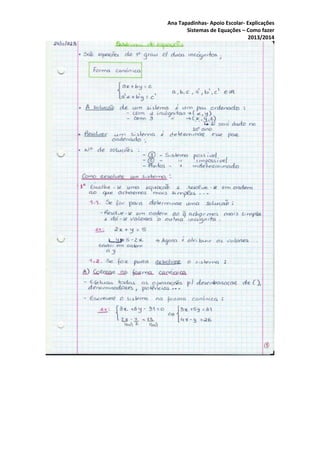 Ana Tapadinhas- Apoio Escolar- Explicações
Sistemas de Equações – Como fazer
2013/2014
• São equações de 1º grau c/ duas incógnitas:
Forma canónica
ax + by = c
a'x + b'y = c'
a, b, c, a', b', c' ∈ ℝ
• A solução de um sistema é um par ordenado:
- com 2 incógnitas → (x, y)
- com 3 " → (x, y, z)
↳ só será dado no
10º ano
• Resolver um sistema é determinar esse par
ordenado;
• Nº de soluções:
- 1 - Sistema possível
- 0 - " impossível
- Muitas - " indeterminado
Como resolver um sistema:
1º Escolhe-se uma equação e resolve-se em ordem
ao que acharmos mais simples ...
1.1. Se for para determinar uma solução:
- Resolve-se em ordem ao q acharmos mais simples
e dá-se valores à outra incógnita.
ex: 2x + y = 5
y = 5 - 2x → Agora é atribuir os valores...
está em ordem
a y
1.2. Se for para resolver o sistema:
A) Colocar na forma canónica
- Efetuar todas as operações p/ desembaraçar de ( ),
denominadores, potências ...
- Escrever o sistema na forma canónica:
ex: 3x + 5y - 31 = 0
3x + 5y = 31
4x - y = 26